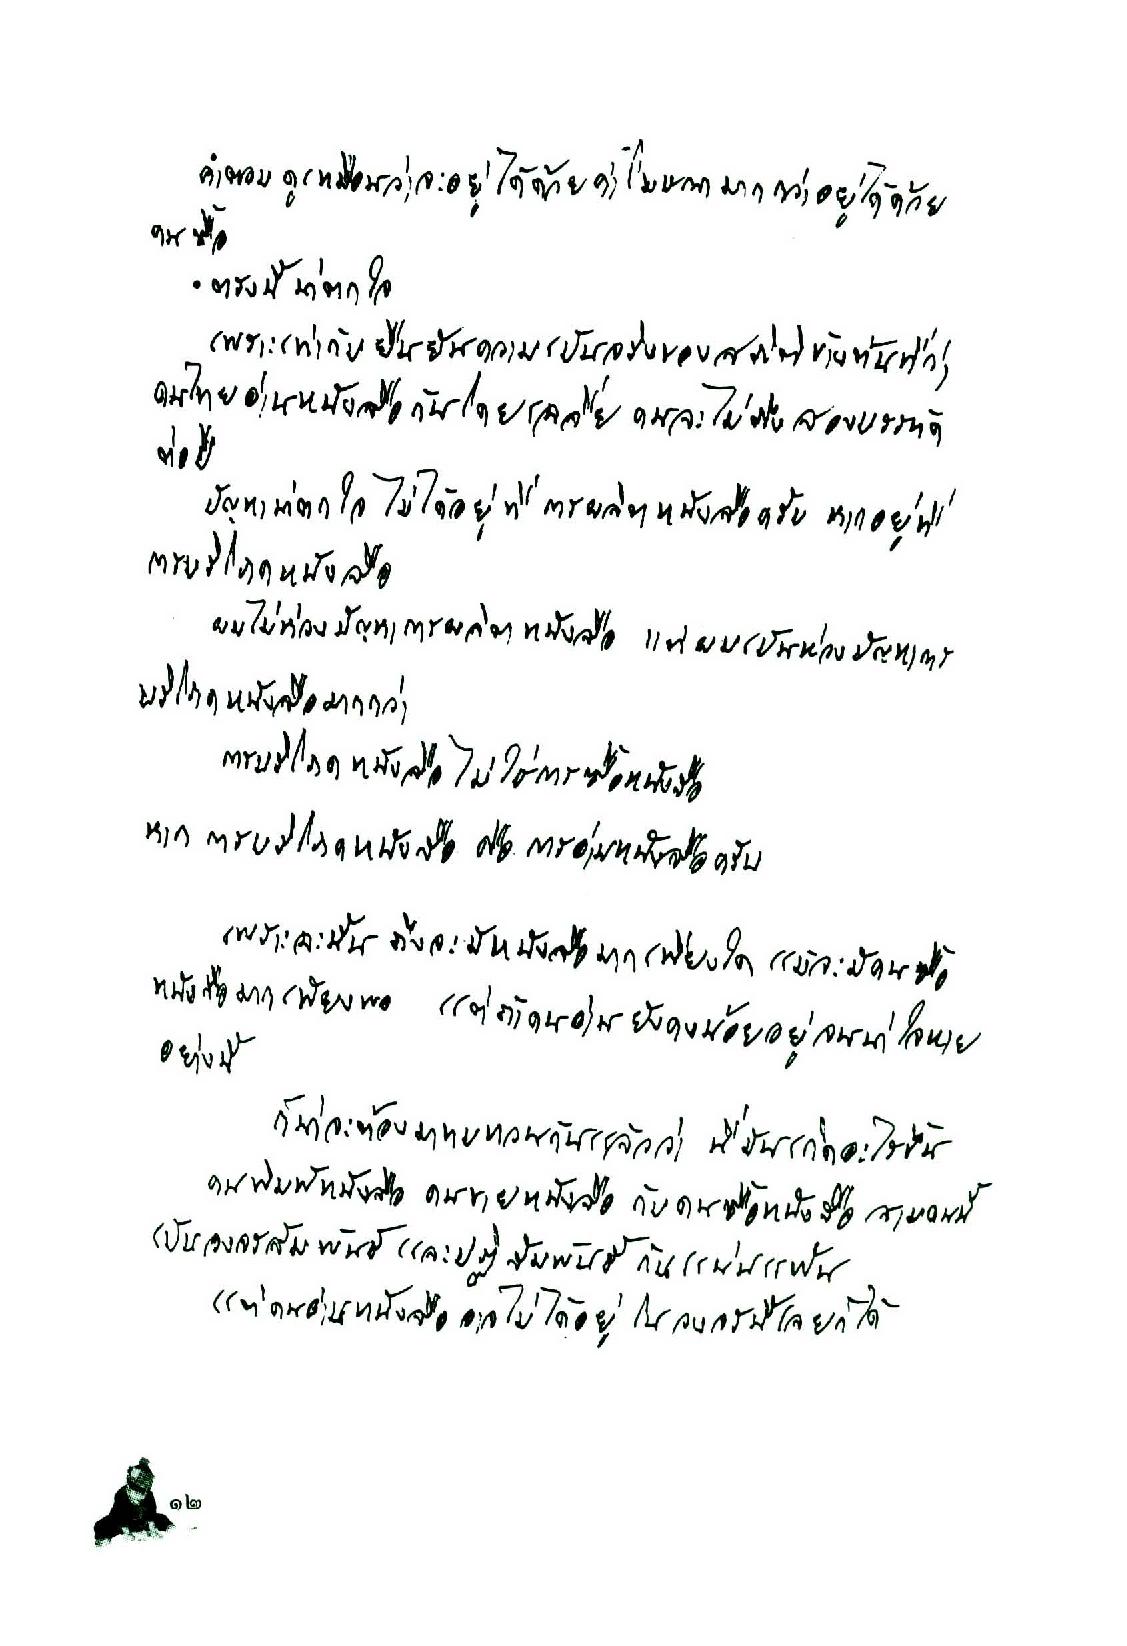 คำตอบดูเหมือนว่าจะอยู่ได้ด้วยค่าโฆษณามากกว่าอยู่ได้ด้วย
คนซื้อ
• ตรงนี้น่าตกใจ
เพราะเท่ากับยืนยันความเป็นจริงของสถิติขึ้นทันทีว่า
คนไทยอ่านหนังสือกันโดยเฉลี่ย คนละไม่ถึงสองบรรทัด
ต่อปี
ปัญหาน่าตกใจ ไม่ได้อยู่ที่การผลิตหนังสือครับ หากอยู่ที่
การบริโภคหนังสือ
ผมไม่ห่วงปัญหาการผลิตหนังสือ แต่ผมเป็นห่วงปัญหาการ
บริโภคหนังสือมากกว่า
การบริโภคหนังสือ ไม่ใช่การซื้อหนังสือ
หาก การบริโภคหนังสือ คือ การอ่านหนังสือครับ
เพราะฉะนั้น ถึงจะมีหนังสือมากเพียงใด แม้จะมีคนซื้อ
หนังสือมากเพียงพอ แต่ถ้าคนอ่านยังคงน้อยอยู่จนน่าใจหาย
อย่างนี้
ก็น่าจะต้องมาทบทวนกันแล้วว่า นี่มันเกิดอะไรขึ้น
คนพิมพ์หนังสือ คนขายหนังสือ กับคนซื้อหนังสือ สามคนนี้
เป็นวงจรสัมพันธ์ และปฏิสัมพันธ์กันแน่นแฟ้น
แต่คนอ่านหนังสืออาจไม่ได้อยู่ในวงจรนี้เลยก็ได้
๑๒